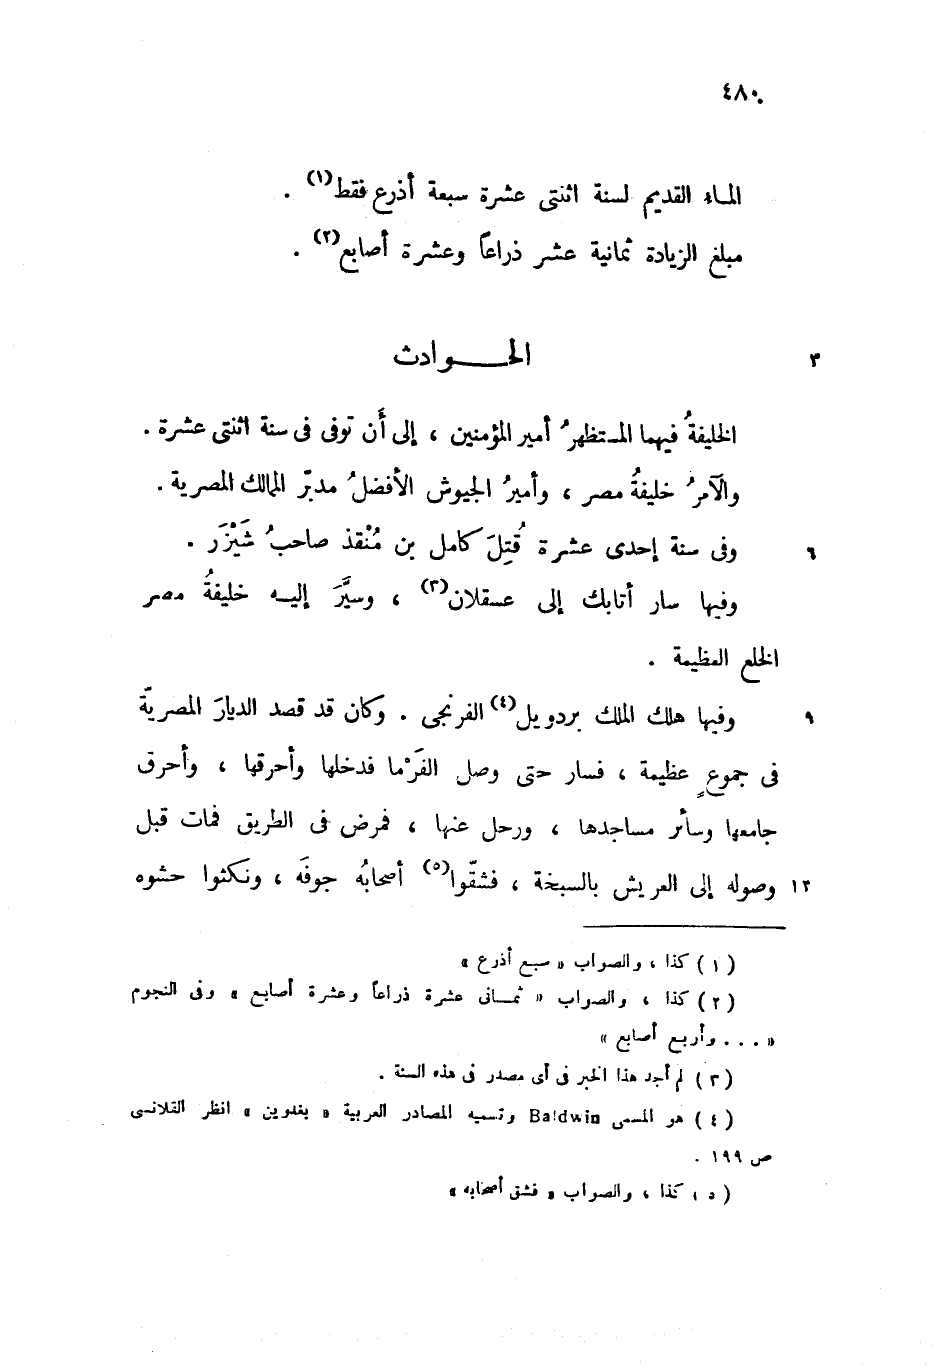 ٤٨٠
الماء القديم لسنة اثنتى عشرة سبعة أذرع فقط(١) .
مبلغ الزيادة ثمانية عشر ذراعاً وعشرة أصابع(٢) .
٣ الحـــوادث
الخليفةُ فيهما المستظهرُ أمير المؤمنين ، إلى أَن توفى فى سنة اثنتى عشرة .
والآمرُ خليفةُ مصر ، وأميرُ الجيوش الأفضلُ مدبّر الممالك المصرية .
٦ وفى سنة إحدى عشرة قُتِلَ كامل بن مُنْقذ صاحبُ شَيْزَر .
وفيها سار أتابك إلى عسقلان(٣) ، وسيَّرَ إليه خليفةُ مصر
الخلع العظيمة .
٩ وفيها هلك الملك بردويل(٤) الفرنجى . وكان قد قصد الديارَ المصريّة
فى جموعٍ عظيمة ، فسار حتى وصل الفَرْما فدخلها وأحرقها ، وأحرق
جامعها وسائر مساجدها ، ورحل عنها ، فمرض فى الطريق فمات قبل
١٢ وصوله إلى العريش بالسبخة ، فشقّوا(٥) أصحابُه جوفَه ، ونكثوا حشوه
(١) كذا ، والصواب « سبع أذرع »
(٢) كذا ، والصواب « ثمـانى عشرة ذراعاً وعشرة أصابع » وفى النجوم
« . . . وأربع أصابع »
(٣) لم أجد هذا الخبر فى أى مصدر فى هذه السنة .
(٤) هو المسمى Baldwin وتسميه المصادر العربية « بغدوين » انظر القلانسى
ص ١٩٩ .
(٥) كذا ، والصواب « فشق أصحابه »